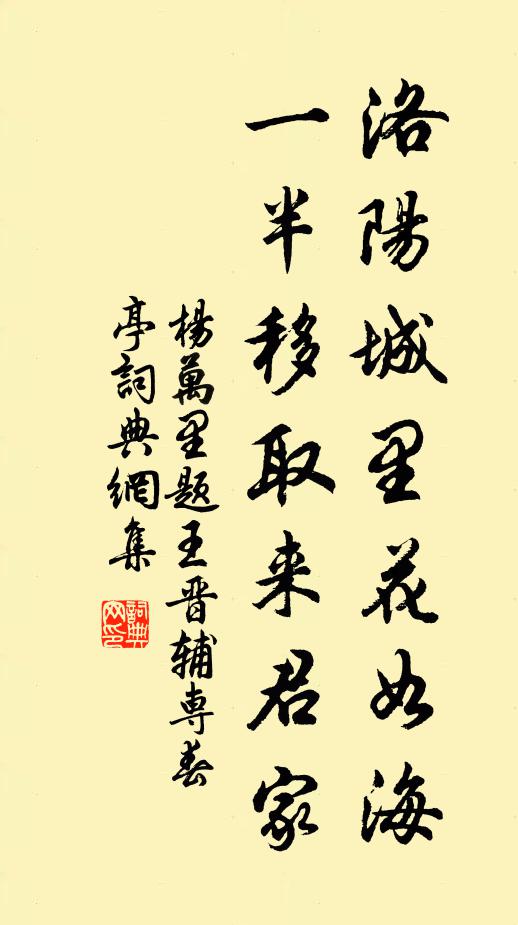 洛陽城里花如海
一半移取来君家
楊萬里題王晋辅専春
亭詞典網集
詞典
网印